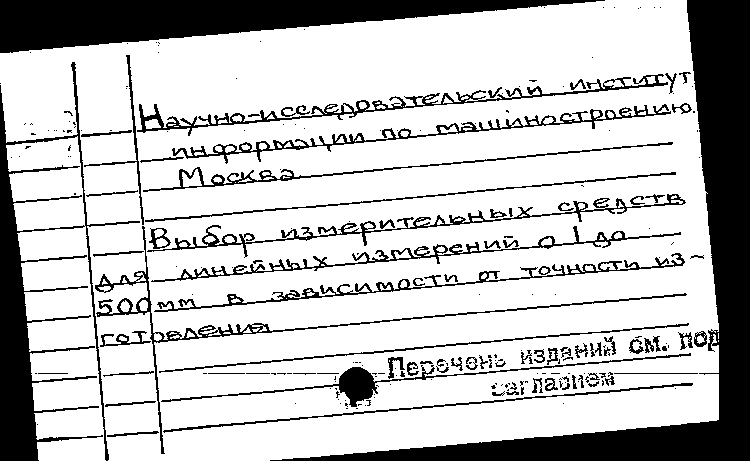 Научно-исследовательский институт
информации по машиностроению.
Москва
Выбор измерительных средств
для линейных измерений о 1 до
500мм в зависимости от точности из-
готовления
Перечень изданий см. под
заглавием